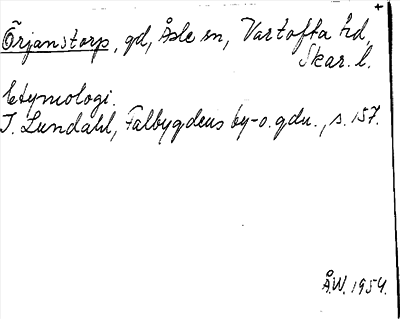 Örjanstorp, gd, Åsle sn, Vartofta hd,
Skar. l.
Etymologi.
I. Lundahl, Falbygdens by-o. gdn., s. 157.
Å.W. 1954.